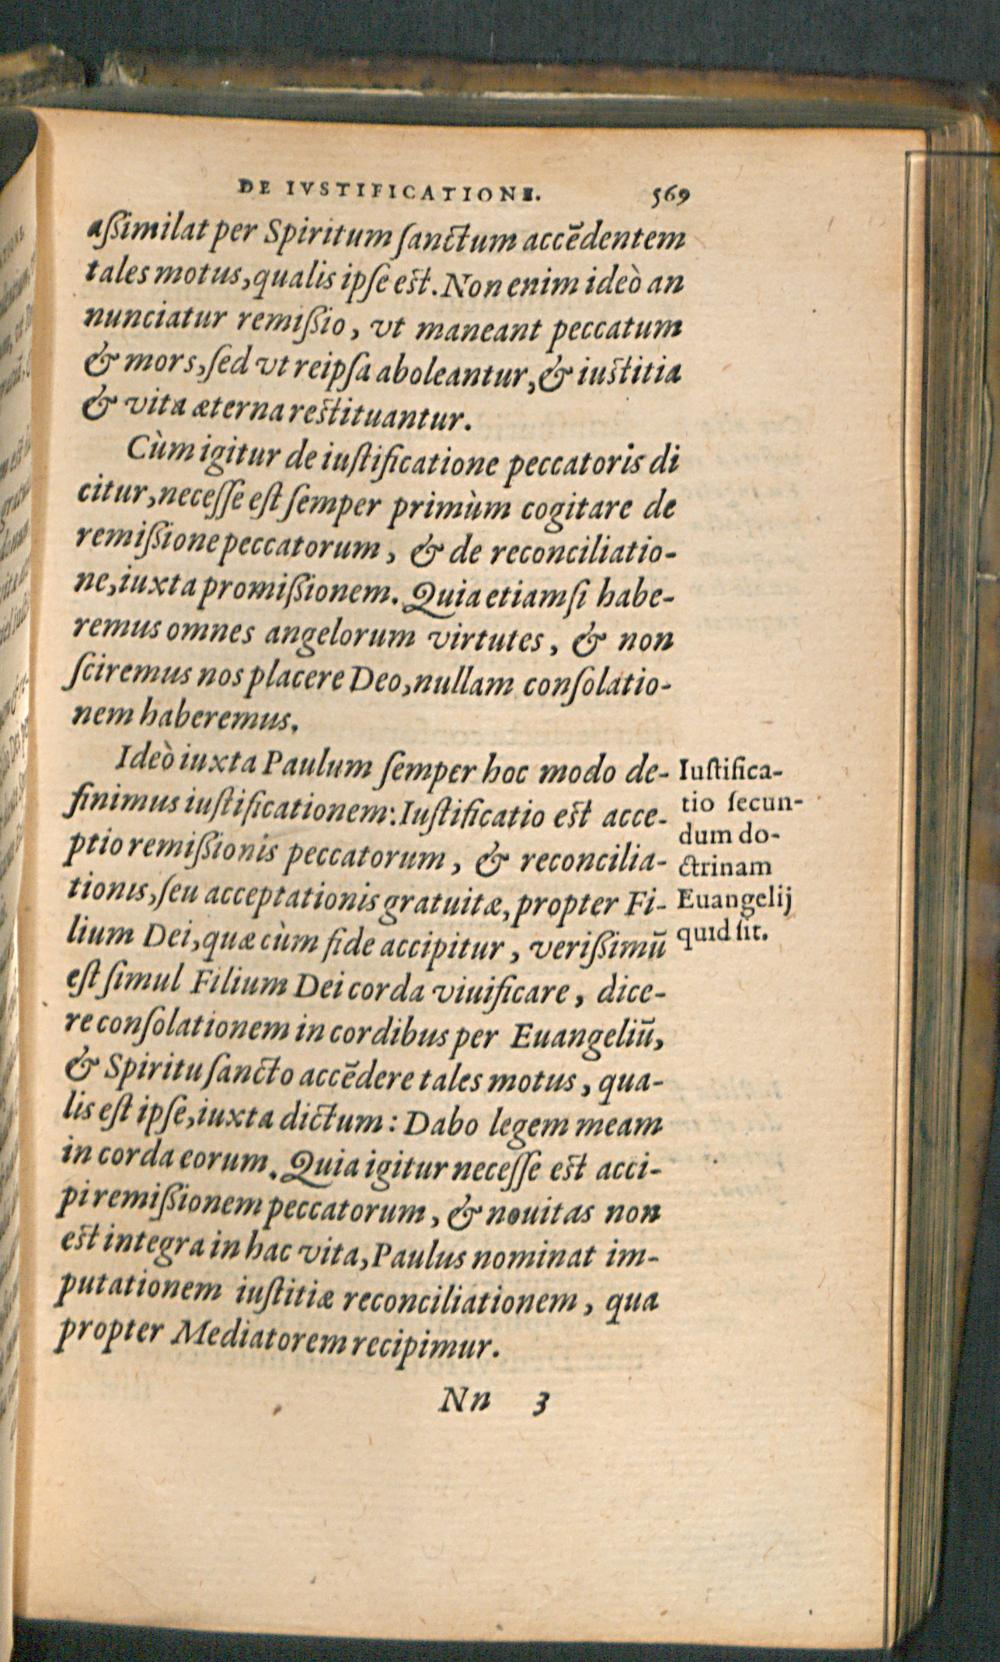 DE IVSTIFICATIONE. 569
aßimilat per Spiritum ſanctum accẽdentem
tales motus, qualis ipſe est. Non enim ideò an
nunciatur remißio, vt maneant peccatum
& mors, ſed vt reipſa aboleantur, & iustitia
& vita æterna restituantur.
Cùm igitur de iuſtificatione peccatoris di
citur, neceſſe eſt ſemper primùm cogitare de
remißione peccatorum, & de reconciliatio-
ne, iuxta promißionem. Quia etiamſi habe-
remus omnes angelorum virtutes, & non
ſciremus nos placere Deo, nullam conſolatio-
nem haberemus.
Ideò iuxta Paulum ſemper hoc modo de-
finimus iuſtificationem: Iuſtificatio est acce-
ptio remißionis peccatorum, & reconcilia-
tionis, ſeu acceptationis gratuitæ, propter Fi-
lium Dei, quæ cùm fide accipitur, verißimũ
eſt ſimul Filium Dei corda viuificare, dice-
re conſolationem in cordibus per Euangeliũ,
& Spiritu ſancto accẽdere tales motus, qua-
lis eſt ipſe, iuxta dictum: Dabo legem meam
in corda eorum. Quia igitur neceſſe est acci-
pi remißionem peccatorum, & nouitas non
est integra in hac vita, Paulus nominat im-
putationem iuſtitiæ reconciliationem, qua
propter Mediatorem recipimur.
Iuſtifica-
tio ſecun-
dum do-
ctrinam
Euangelij
quid ſit.
Nn 3